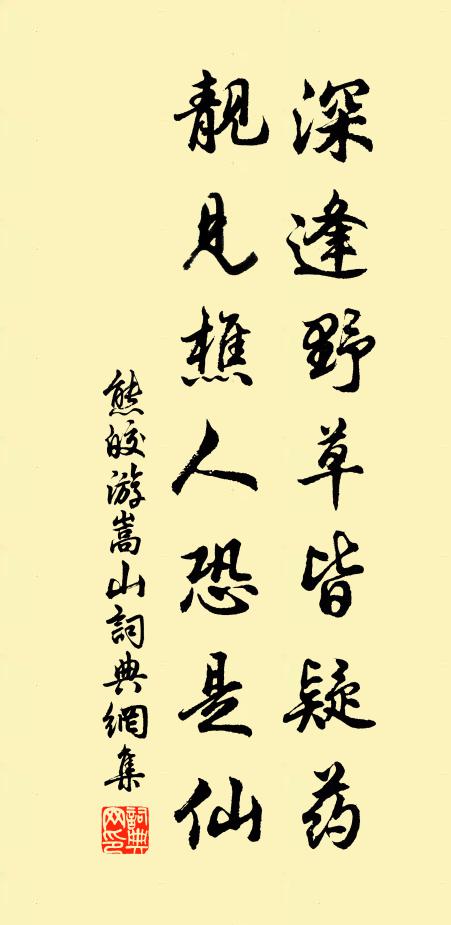 深逢野草皆疑药
靓见樵人恐是仙
熊皎游嵩山詞典網集
詞典网印